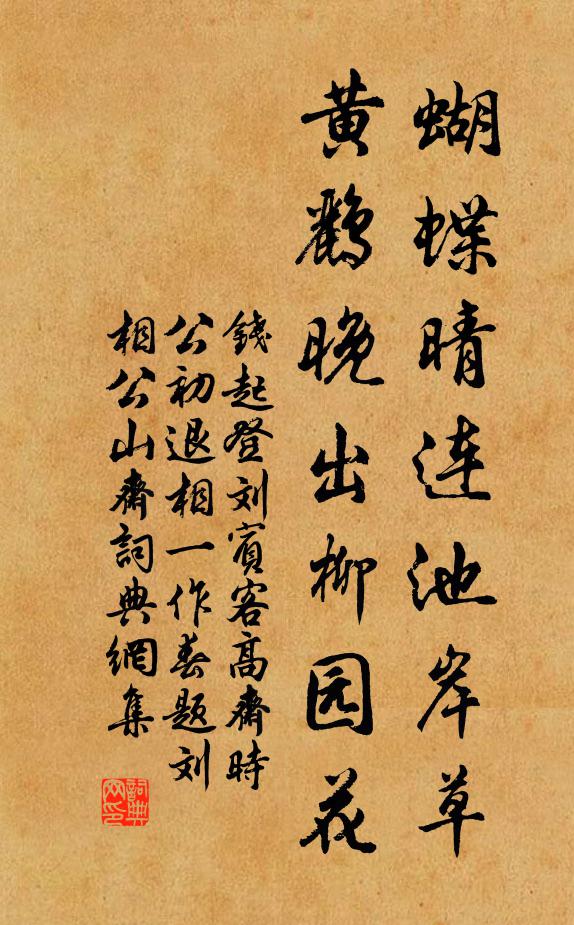 蝴蝶晴连池岸草
黄鸝晚出柳园花
錢起登刘賓客高齋時
公初退相一作春題刘
相公山齋詞典網集
詞典网印